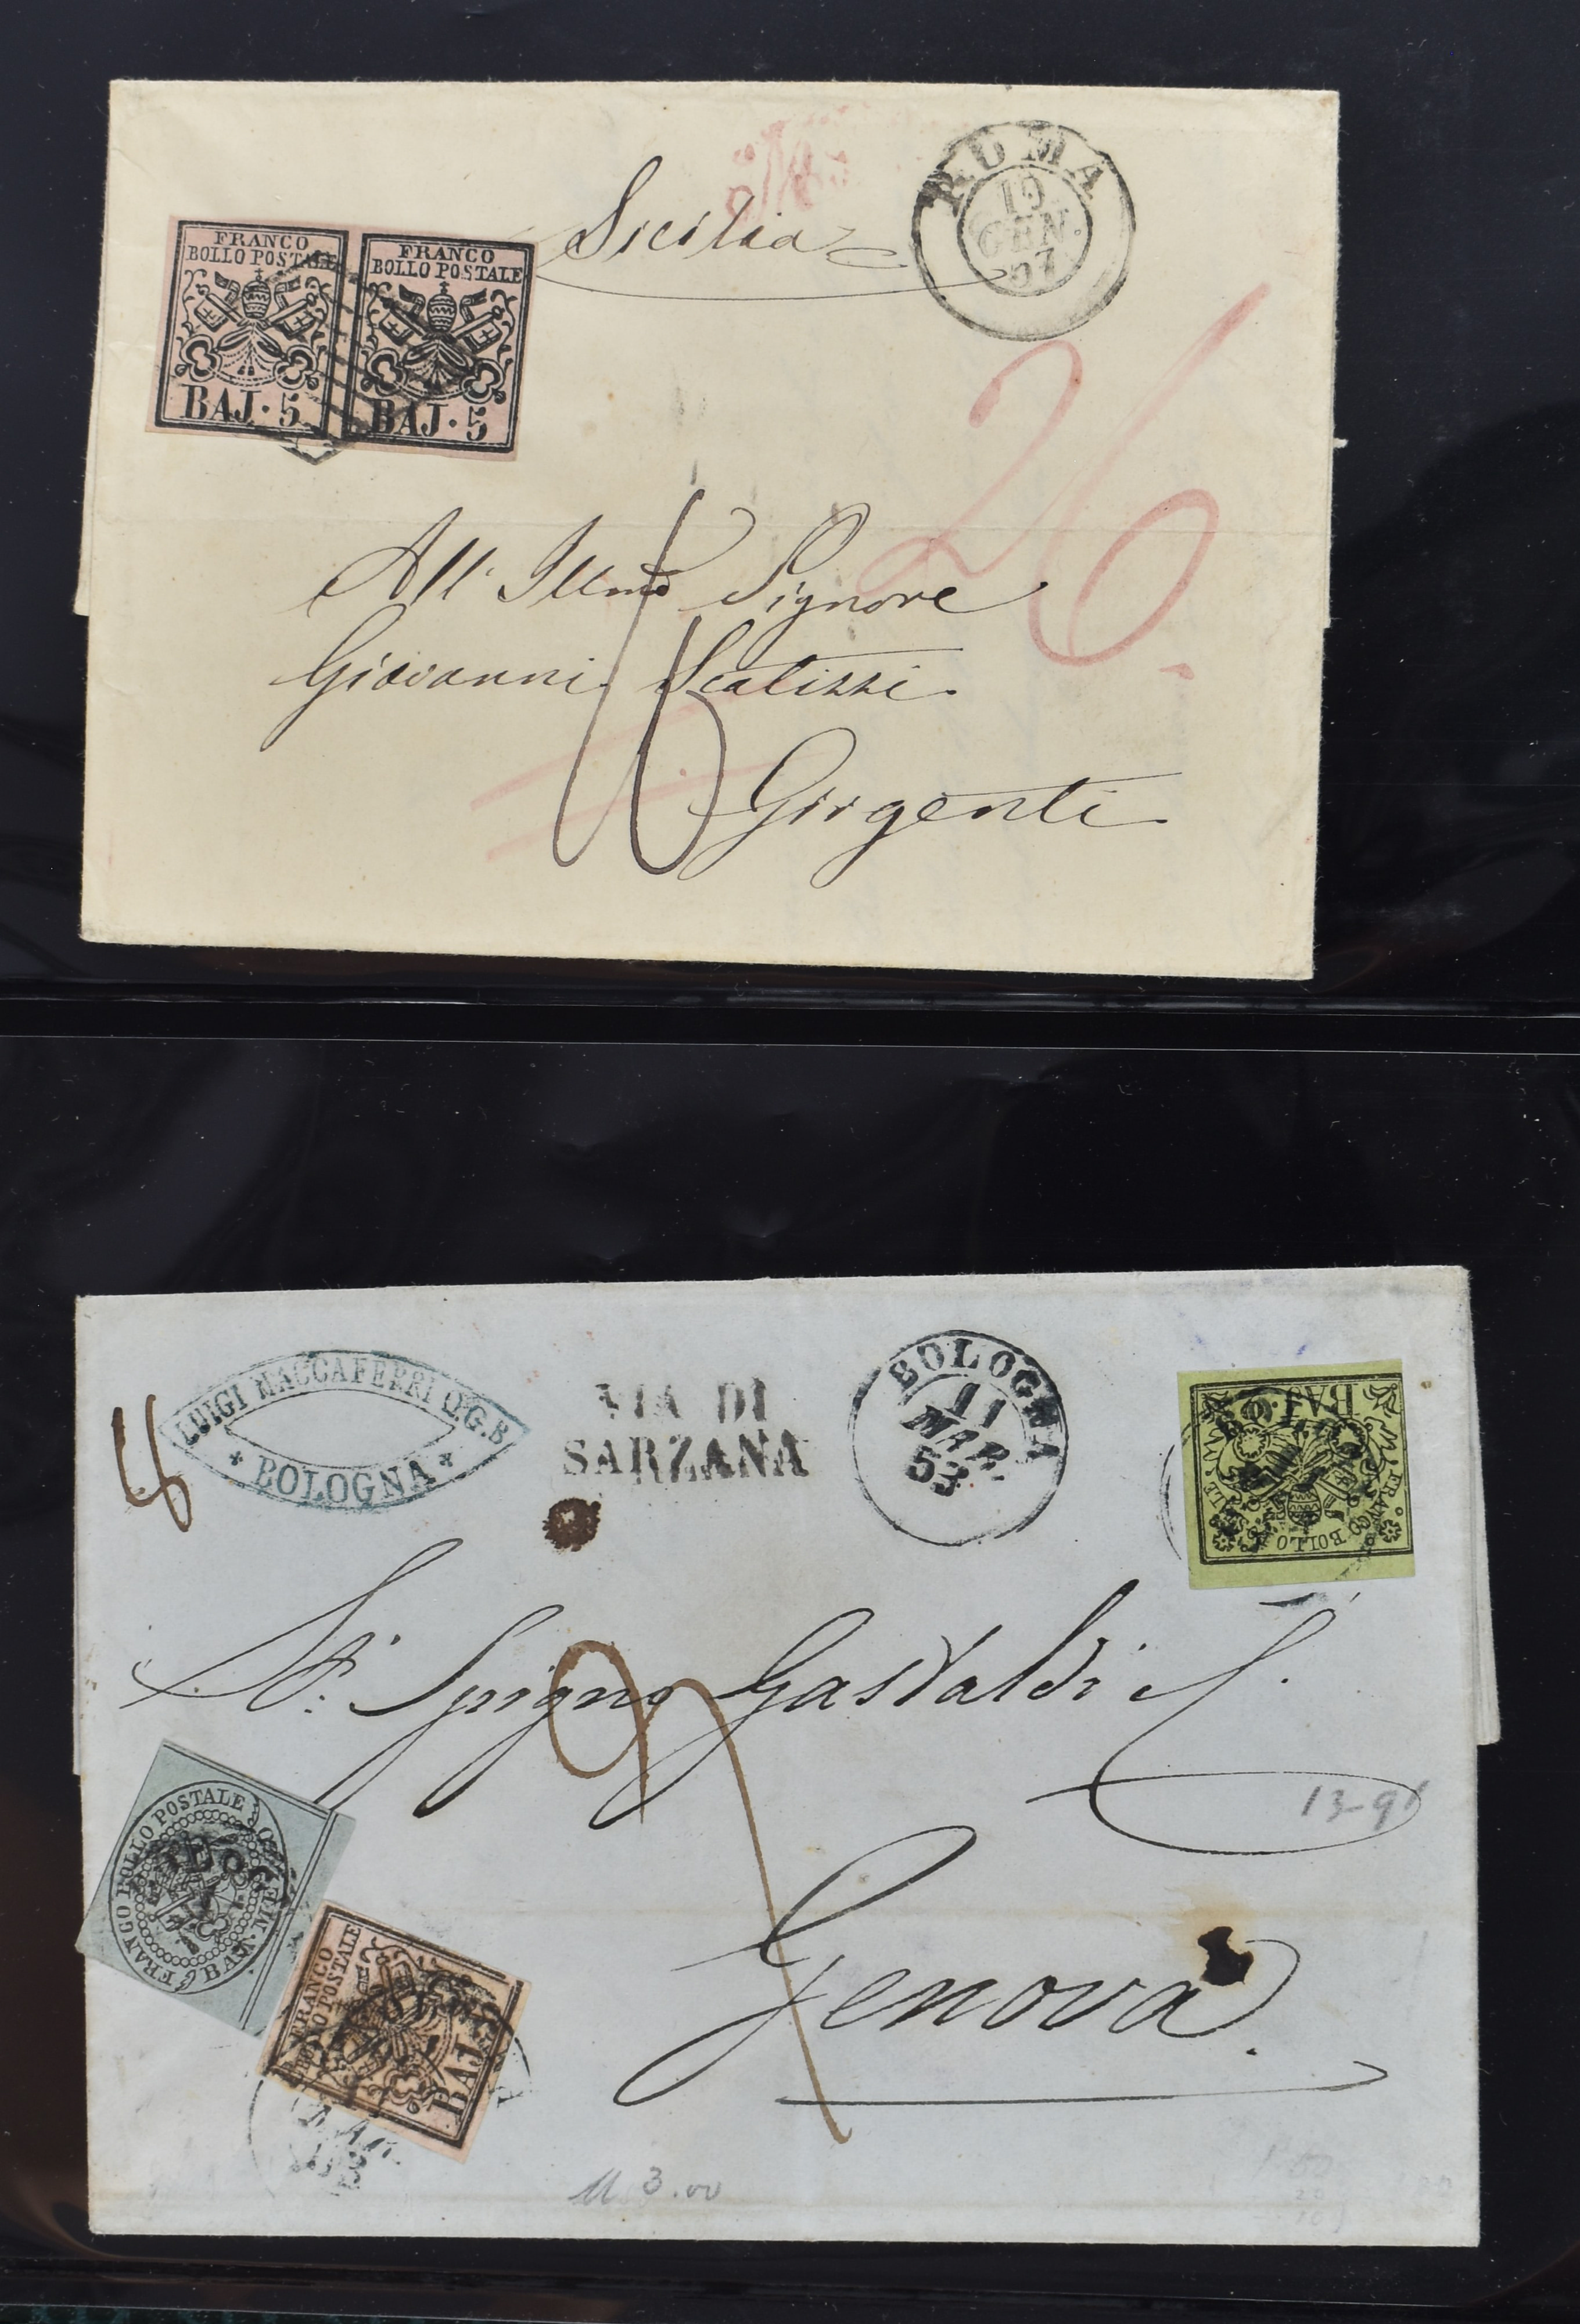 Sicilia
ROMA
19
GEN.
57
FRANCO
BOLLO POSTALE
BAJ. 5
FRANCO
BOLLO POSTALE
BAJ. 5
26.
All' Illmo Signore
Giovanni Scalizzi.
Girgenti
LUIGI MACCAFERRI Q. G. B.
* BOLOGNA *
VIA DI
SARZANA
BOLOGNA
11
MAR.
53
BAJ
FRANCO BOLLO
Spigno Gastaldi
13-91
Genova.
FRANCO BOLLO POSTALE
6 BAJ.
FRANCO
BOLLO POSTALE
BAJ
3.00